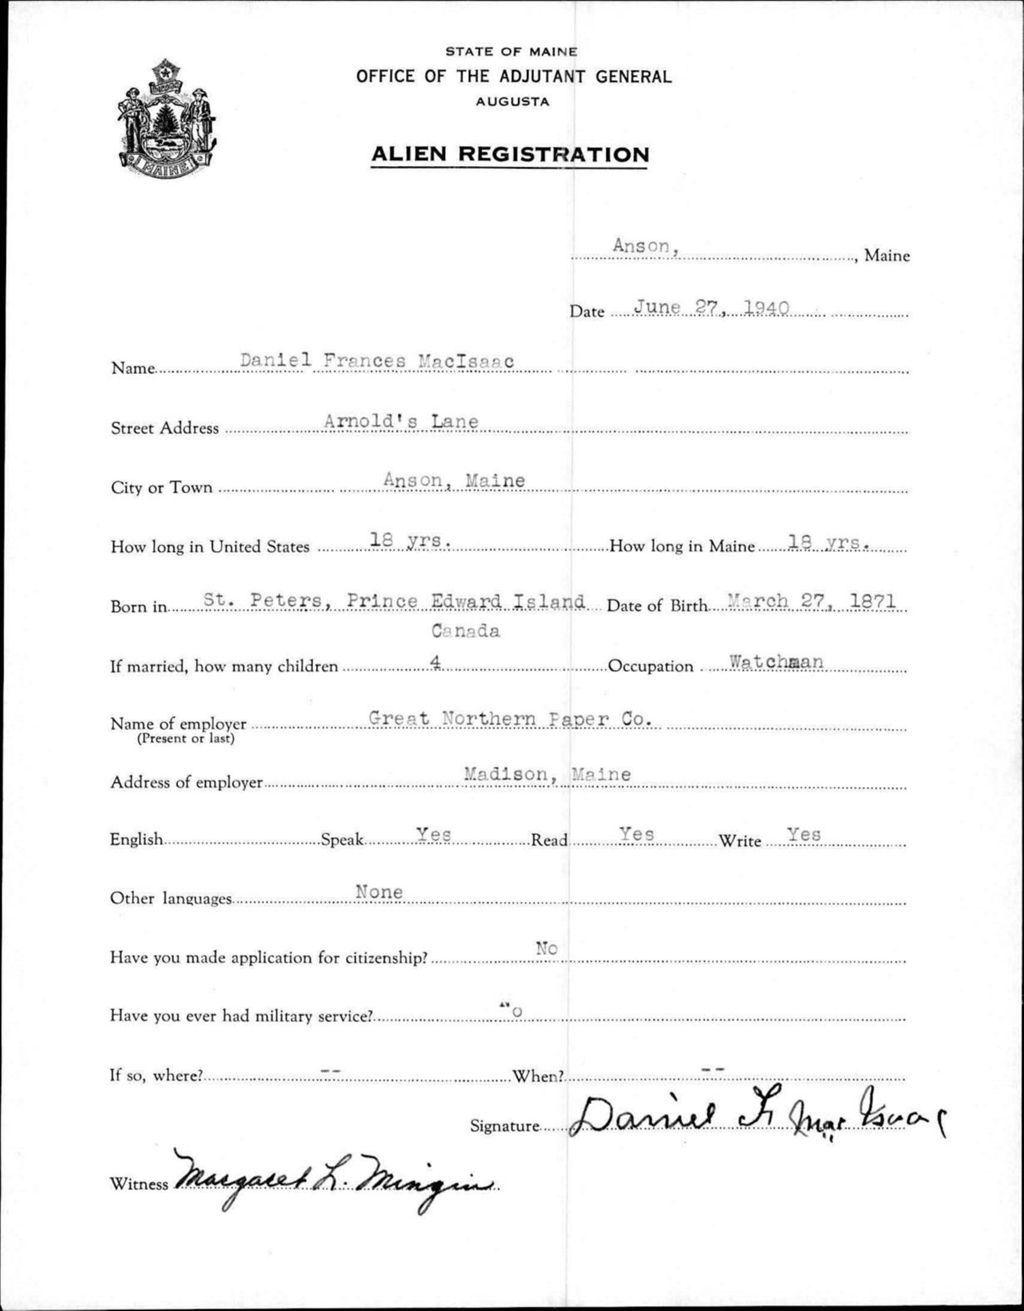 STATE OF MAINE
OFFICE OF THE ADJUTANT GENERAL
AUGUSTA
ALIEN REGISTRATION
MAINE
Anson, , Maine
Date June 27, 1940
Name Daniel Frances MacIsaac
Street Address Arnold's Lane
City or Town Anson, Maine
How long in United States 18 yrs. How long in Maine 18 yrs.
Born in St. Peters, Prince Edward Island Date of Birth March 27, 1871
Canada
If married, how many children 4 Occupation Watchman
Name of employer Great Northern Paper Co.
(Present or last)
Address of employer Madison, Maine
English Speak Yes Read Yes Write Yes
Other languages None
Have you made application for citizenship? No
Have you ever had military service? No
If so, where? -- When? --
Signature Daniel F. Mac Isaac
Witness Margaret L. Mingin